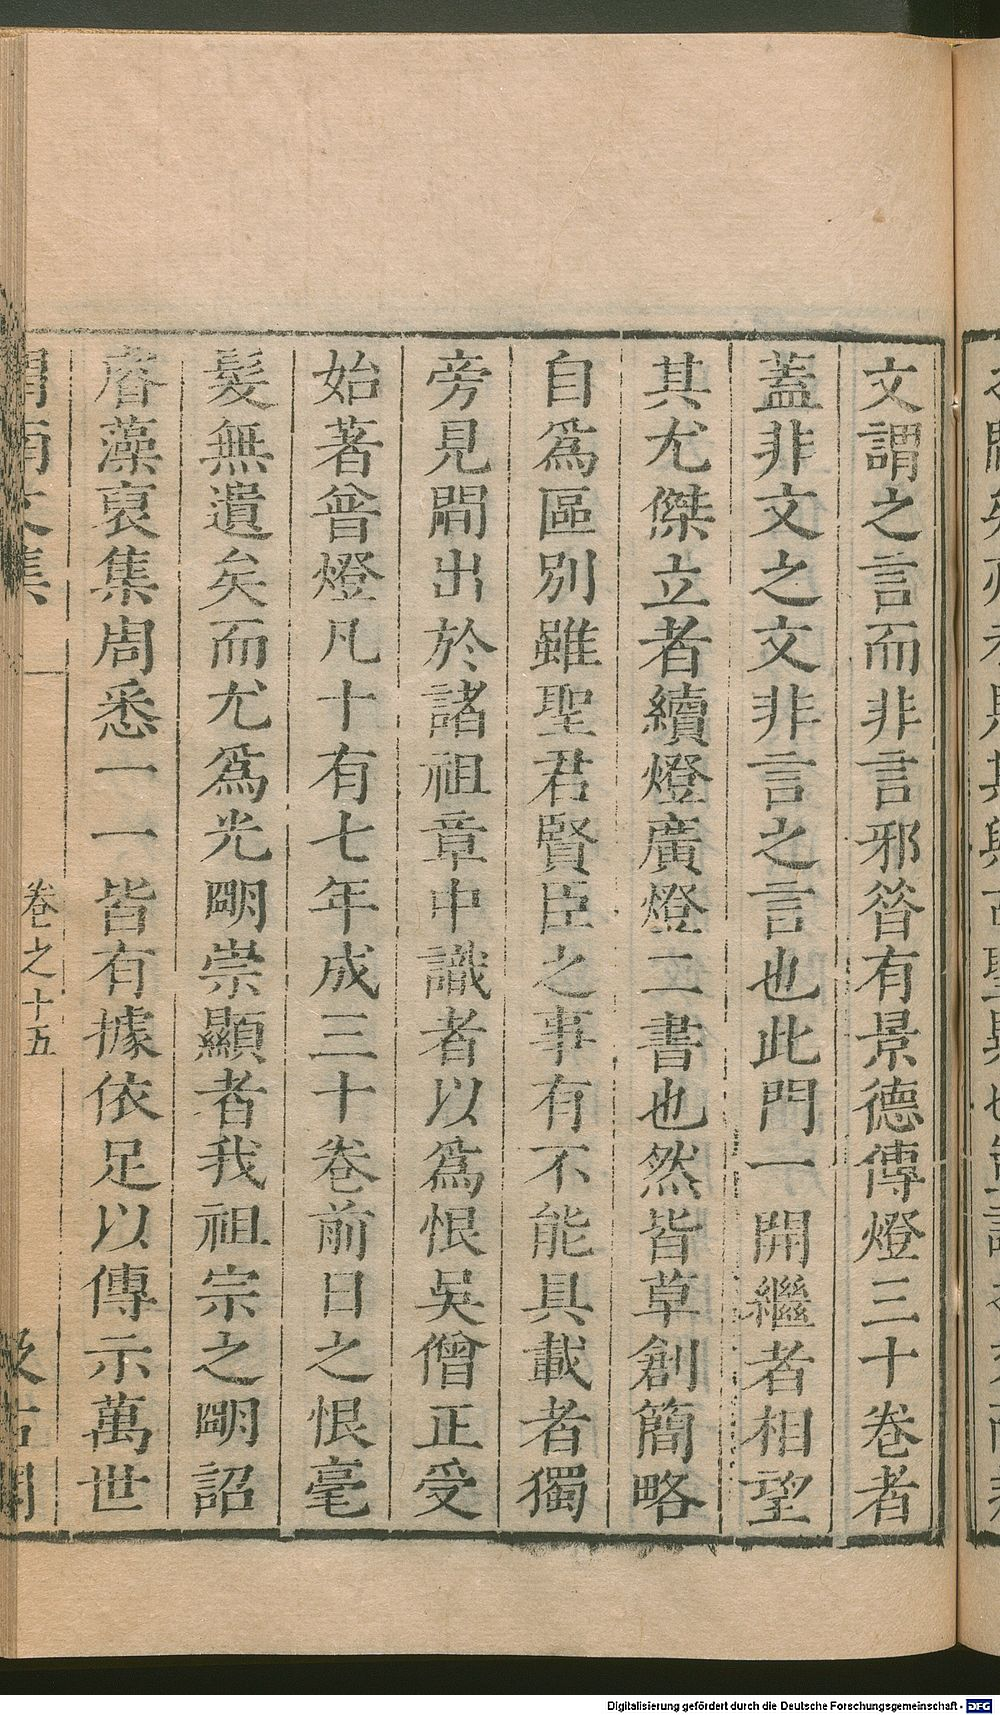 文謂之言而非言邪昝有景德傳燈三十卷者
蓋非文之文非言之言也此門一開繼者相望
其尤傑立者續燈廣燈二書也然皆草創簡略
自爲區別雖聖君賢臣之事有不能具載者獨
旁見間出於諸祖章中識者以爲恨吳僧正受
始著普燈凡十有七年成三十卷前日之恨毫
髮無遺矣而尤爲光朙崇顯者我祖宗之朙詔
睿藻裒集周悉一一皆有據依足以傳示萬世
渭南文集
卷之十五
汲古閣
Digitalisierung gefördert durch die Deutsche Forschungsgemeinschaft - DFG